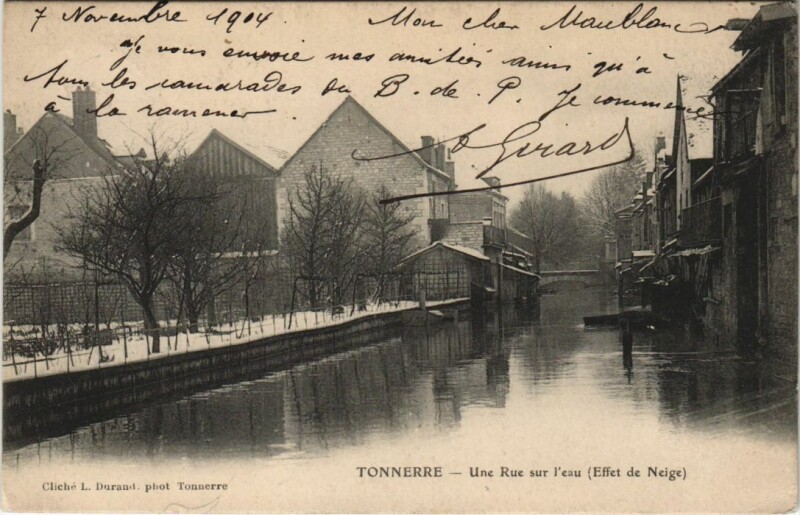 7 Novembre 1904 Mon cher Maublanc
Je vous envoie mes amitiés ainsi qu'à
tous les camarades du B. de P. Je commence
à la ramener
Girard
TONNERRE — Une Rue sur l'eau (Effet de Neige)
Cliché L. Durand. phot Tonnerre